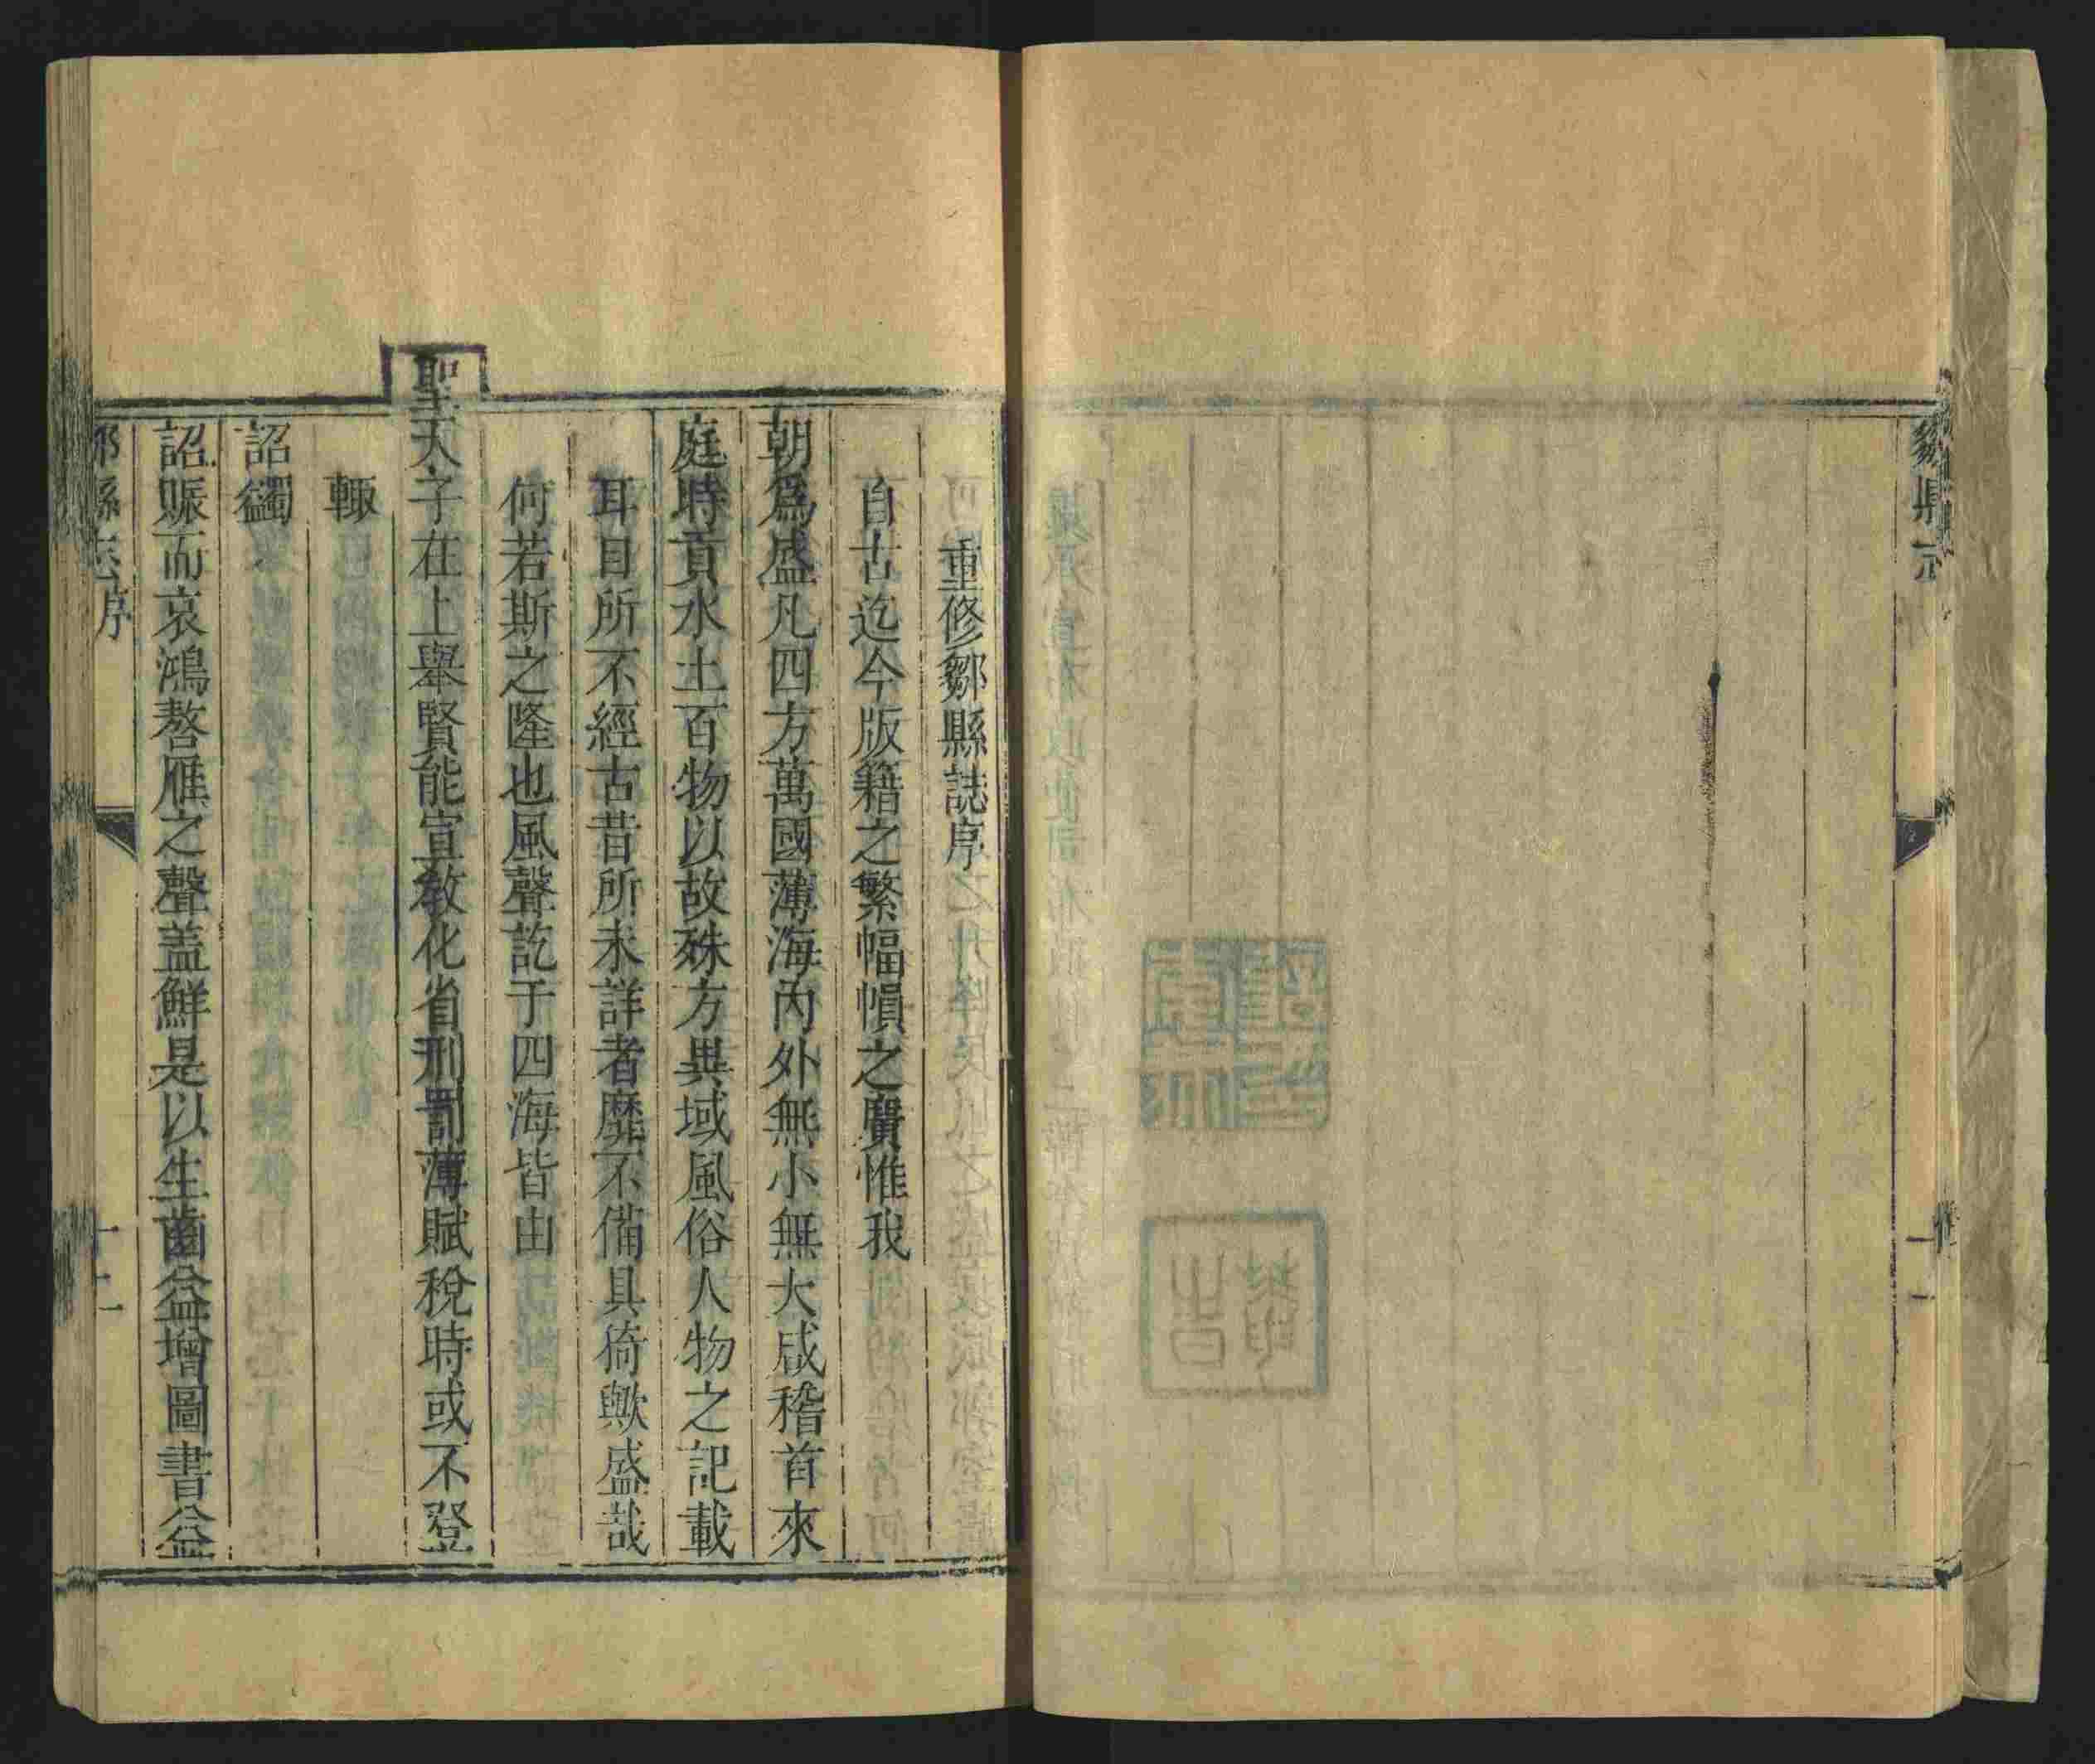 重修鄒縣誌序
自古迄今版籍之繁幅幀之廣惟我
朝爲盛凡四方萬國薄海內外無小無大咸稽首來
庭時貢水土百物以故殊方異域風俗人物之記載
耳目所不經古昔所未詳者靡不備具猗歟盛哉
何若斯之隆也風聲訖于四海皆由
聖天子在上舉賢能宣教化省刑罰薄賦稅時或不登
輙
詔蠲
詔賑而哀鴻嗸雁之聲盖鮮是以生齒益增圖書益